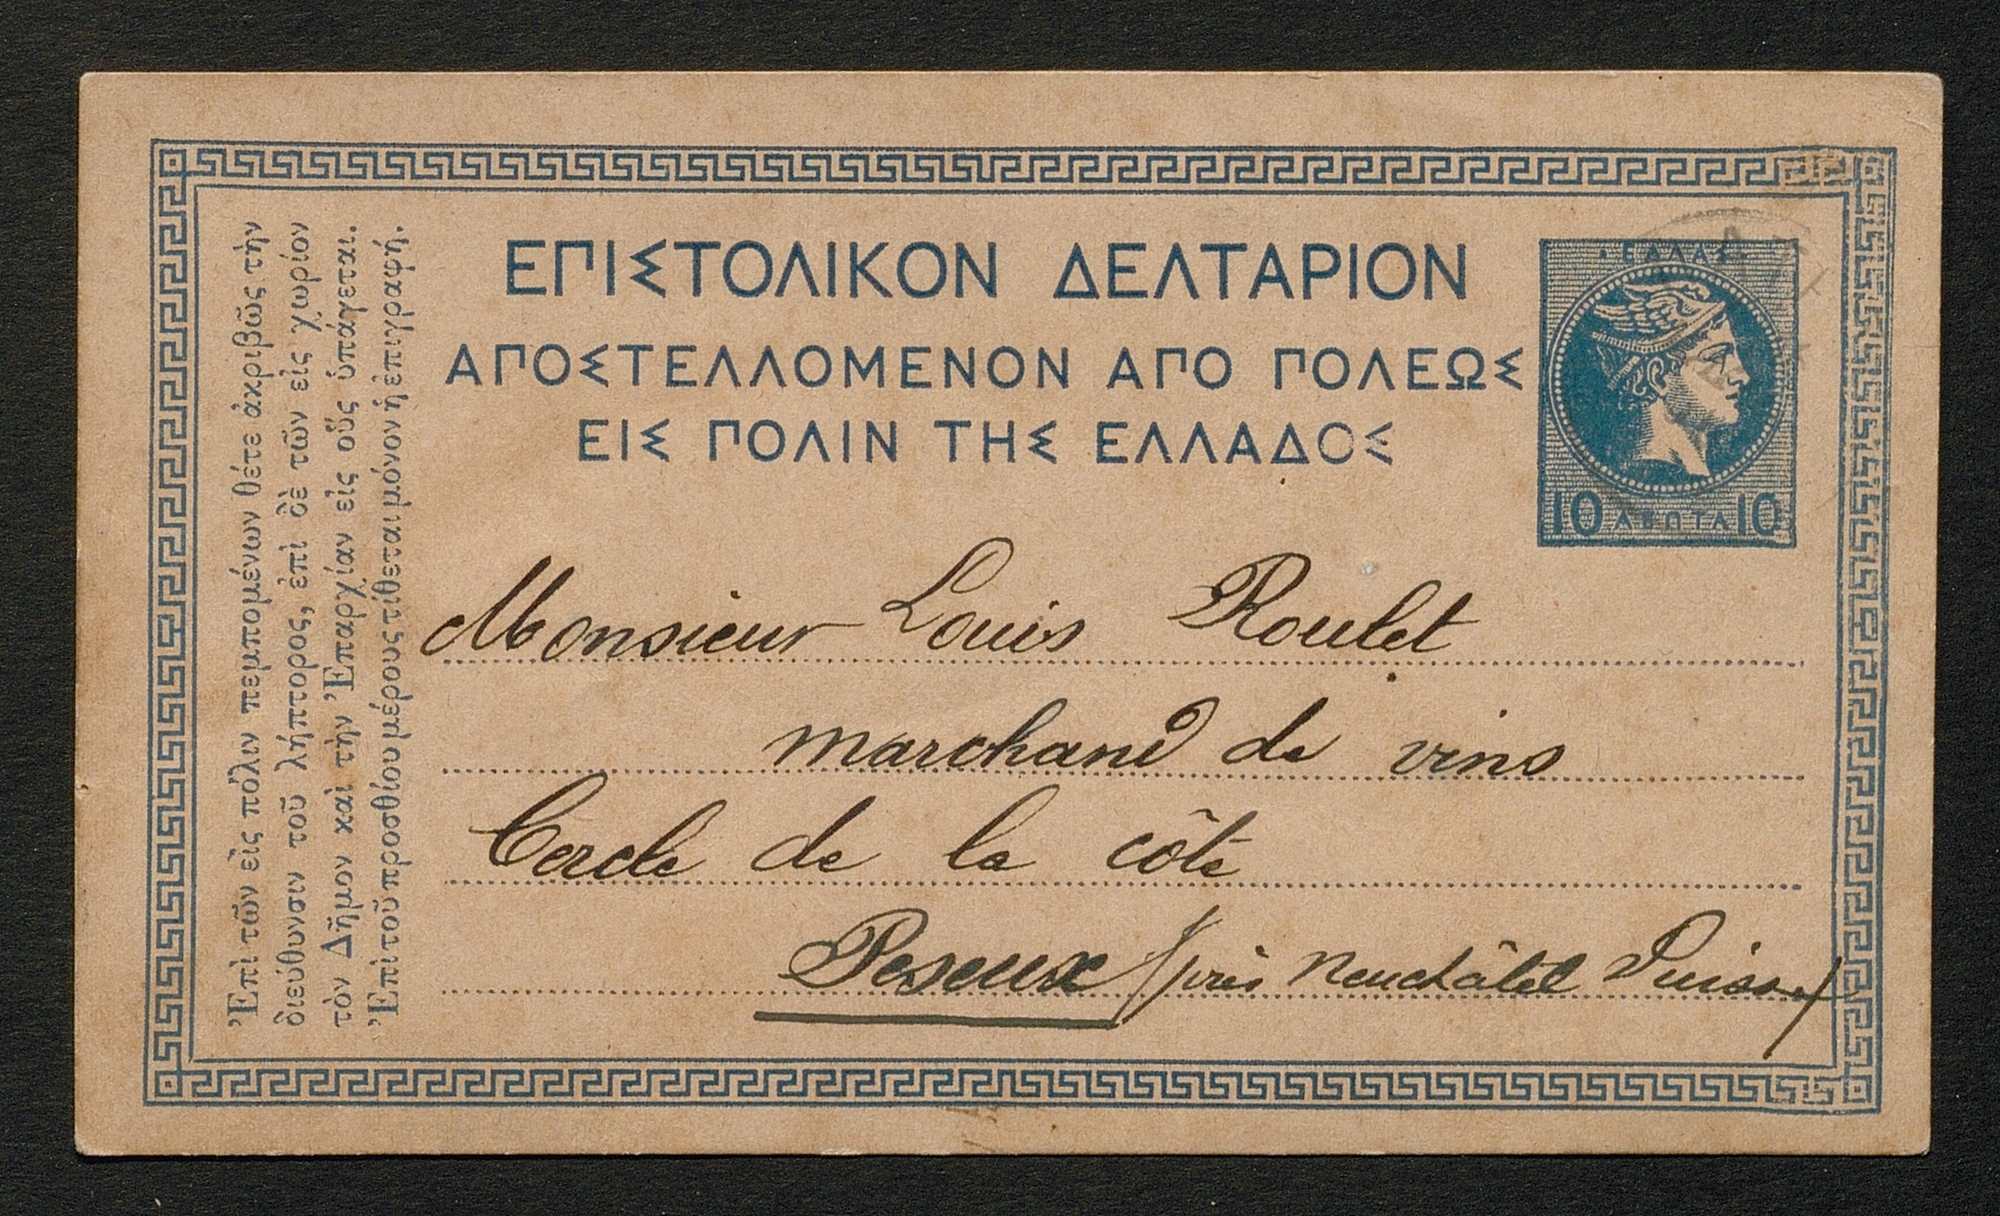 ΕΠΙΣΤΟΛΙΚΟΝ ΔΕΛΤΑΡΙΟΝ
ΑΠΟΣΤΕΛΛΟΜΕΝΟΝ ΑΠΟ ΠΟΛΕΩΣ
ΕΙΣ ΠΟΛΙΝ ΤΗΣ ΕΛΛΑΔΟΣ
ΕΛΛΑΣ
10 ΛΕΠΤΑ 10
Ἐπὶ τῶν εἰς πόλιν πεμπομένων θέτε ἀκριβῶς τὴν
διεύθυνσιν τοῦ λήπτορος, ἐπὶ δὲ τῶν εἰς χωρίον
τὸν Δῆμον καὶ τὴν Ἐπαρχίαν εἰς οὓς ὑπάγεται.
Ἐπὶ τοῦ προσθίου μέρους τίθεται μόνον ἡ ἐπιγραφή.
Monsieur Louis Roulet
marchand de vins
Cercle de la côte
Peseux (près Neuchâtel Suisse)